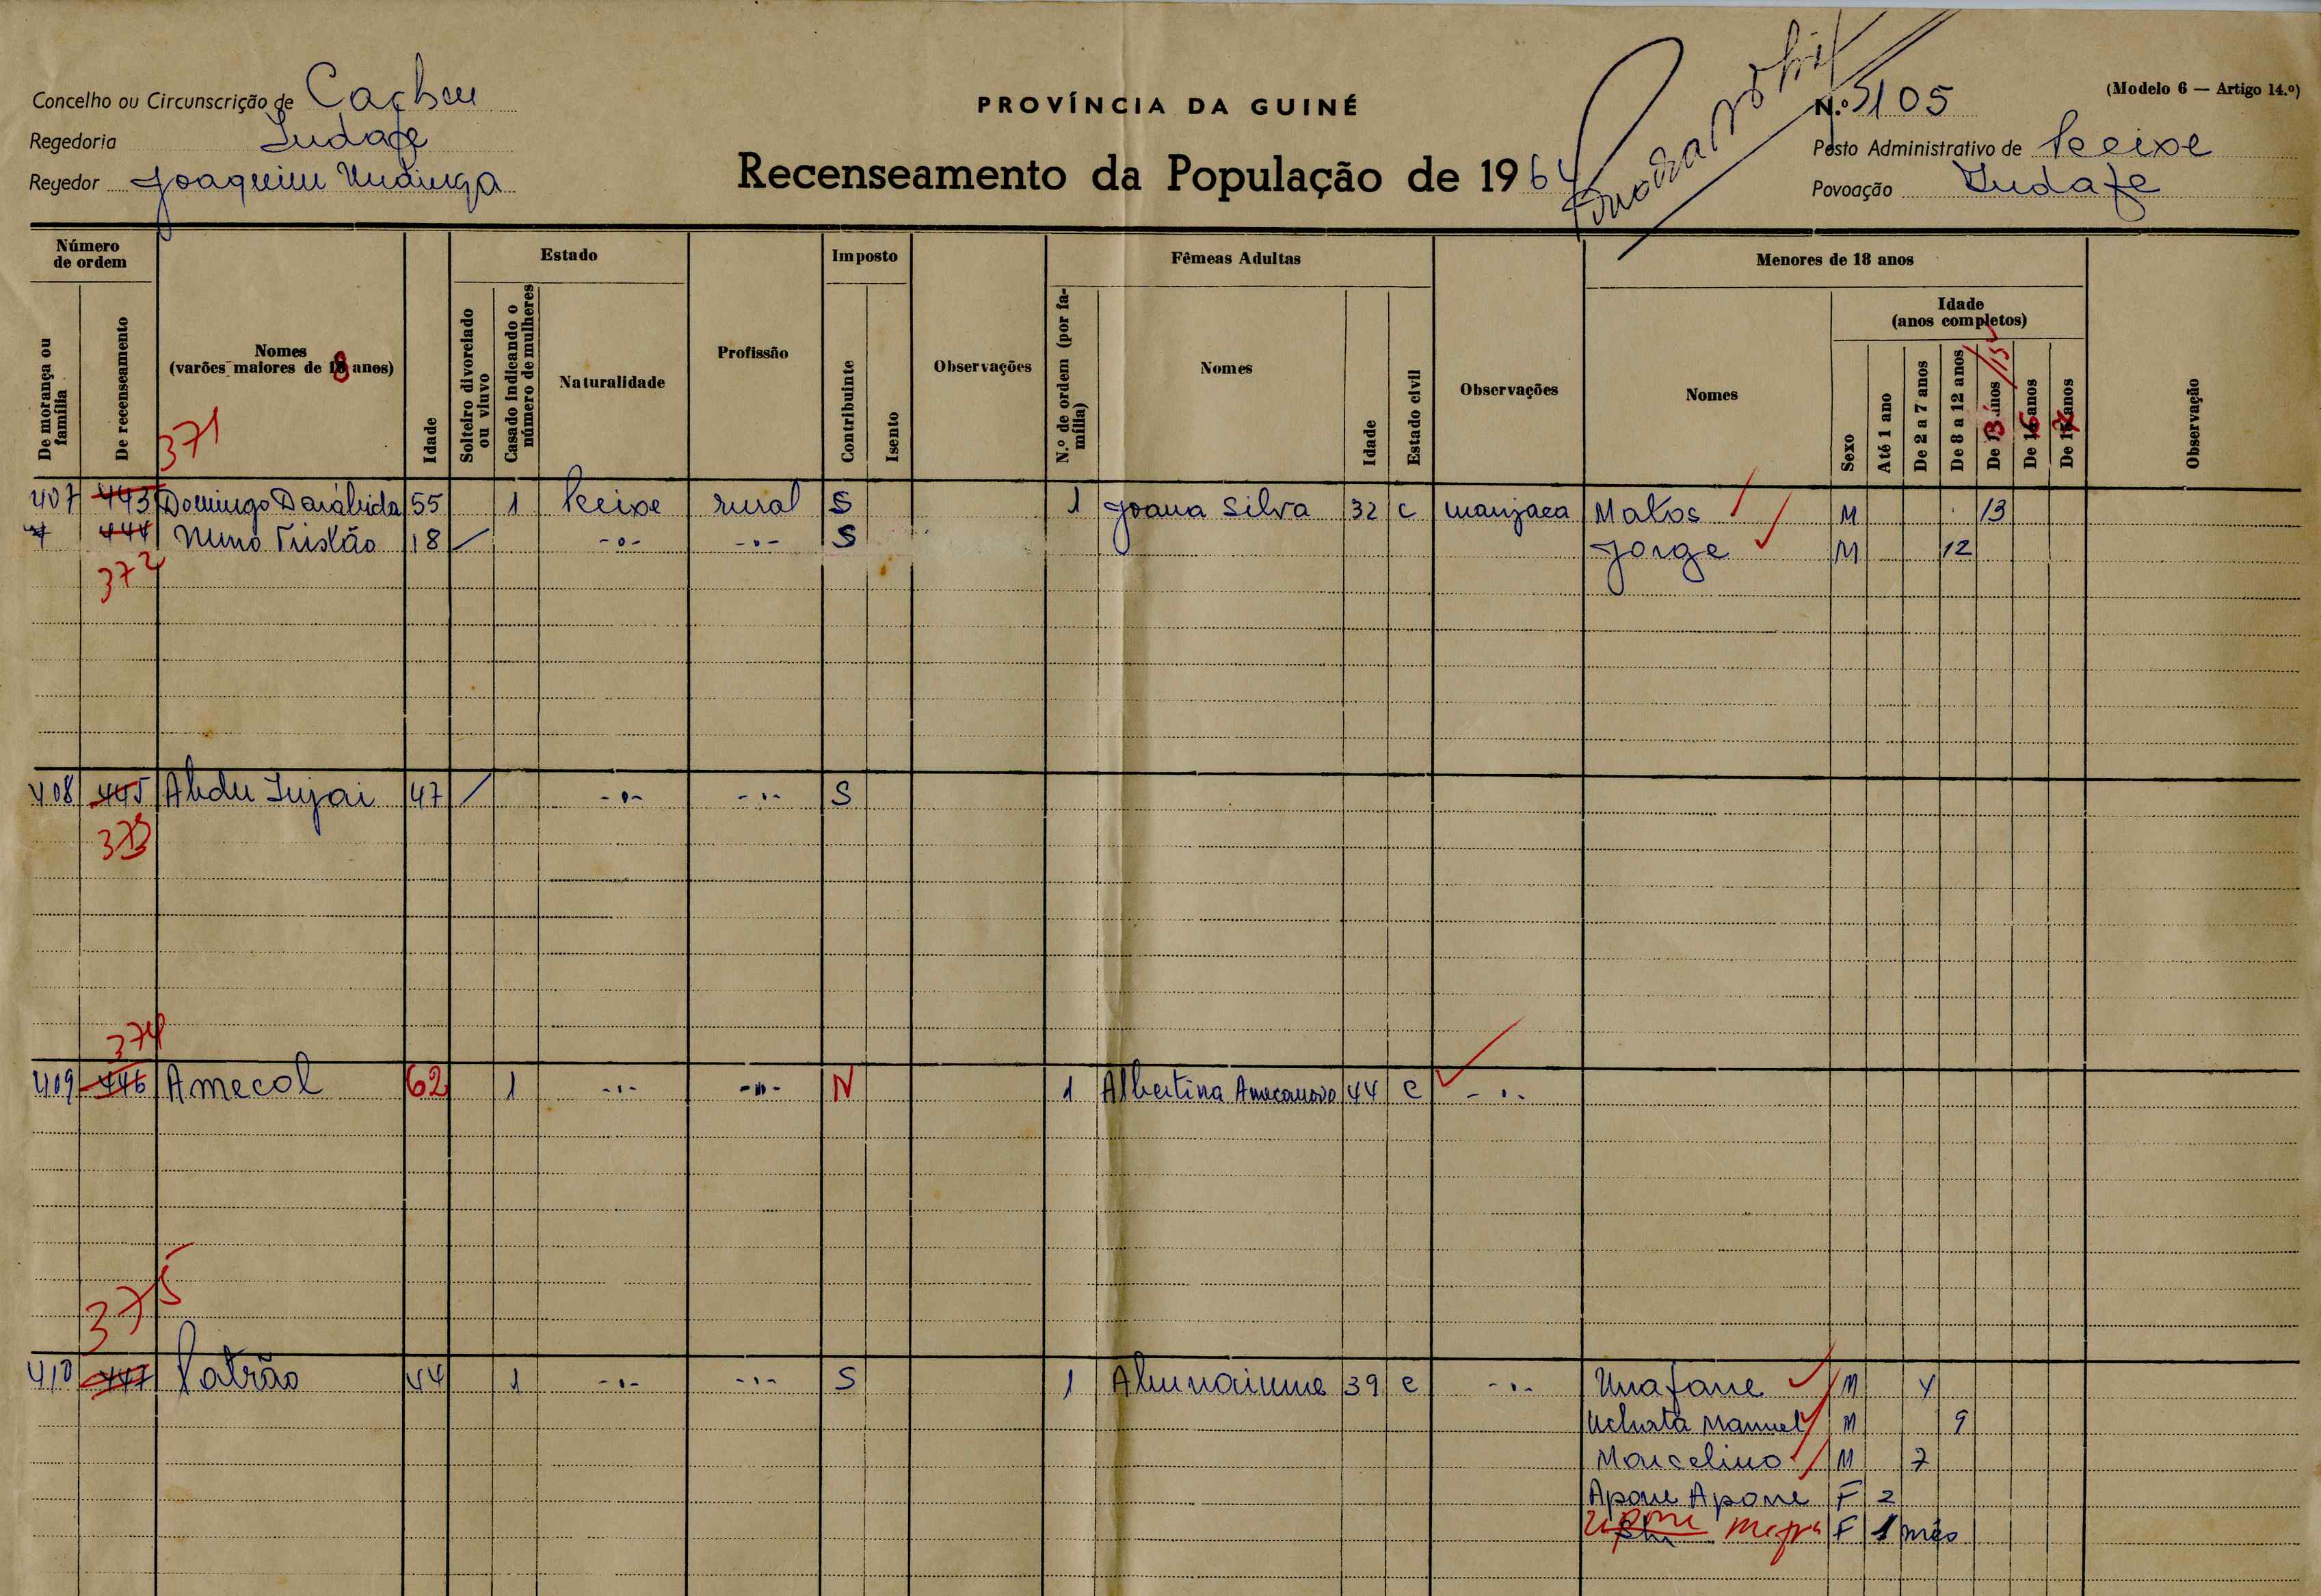 Concelho ou Circunscrição de Cacheu
Regedoria Iudafe
Regedor Joaquim
PROVÍNCIA DA GUINÉ
Recenseamento da População de 1964
(Modelo 6 — Artigo 14.º)
N.º 5105
Posto Administrativo de Keixe
Povoação Iudafe
Número de ordem
De morança ou família
De recenseamento
Nomes
(varões maiores de 18 anos)
Idade
Estado
Solteiro divorciado ou viuvo
Casado indicando o número de mulheres
Naturalidade
Profissão
Imposto
Contribuinte
Isento
Observações
Fêmeas Adultas
N.º de ordem (por família)
Nomes
Idade
Estado civil
Observações
Menores de 18 anos
Nomes
Sexo
Idade
(anos completos)
Até 1 ano
De 2 a 7 anos
De 8 a 12 anos
De 13 anos /15
De 16 anos
De 17 anos
Observação
371
407 443 Domingo 55 1 Keixe rural S 1 Joana Silva 32 c manjaca Matos M 13
444 Nuno Tristão 18 / -o- -o- S Jorge M 12
372
408 445 Abdu Injai 47 / -o- -·- S
373
374
409 446 Amecol 62 1 -·- -"- N 1 Albertina 44 c -·-
375
410 447 Patrão 44 1 -·- -·- S 1 39 c -·- Unafane M 4
Uchata Manuel M 9
Marcelino M 7
Apone Apone F 2
F 1 mês